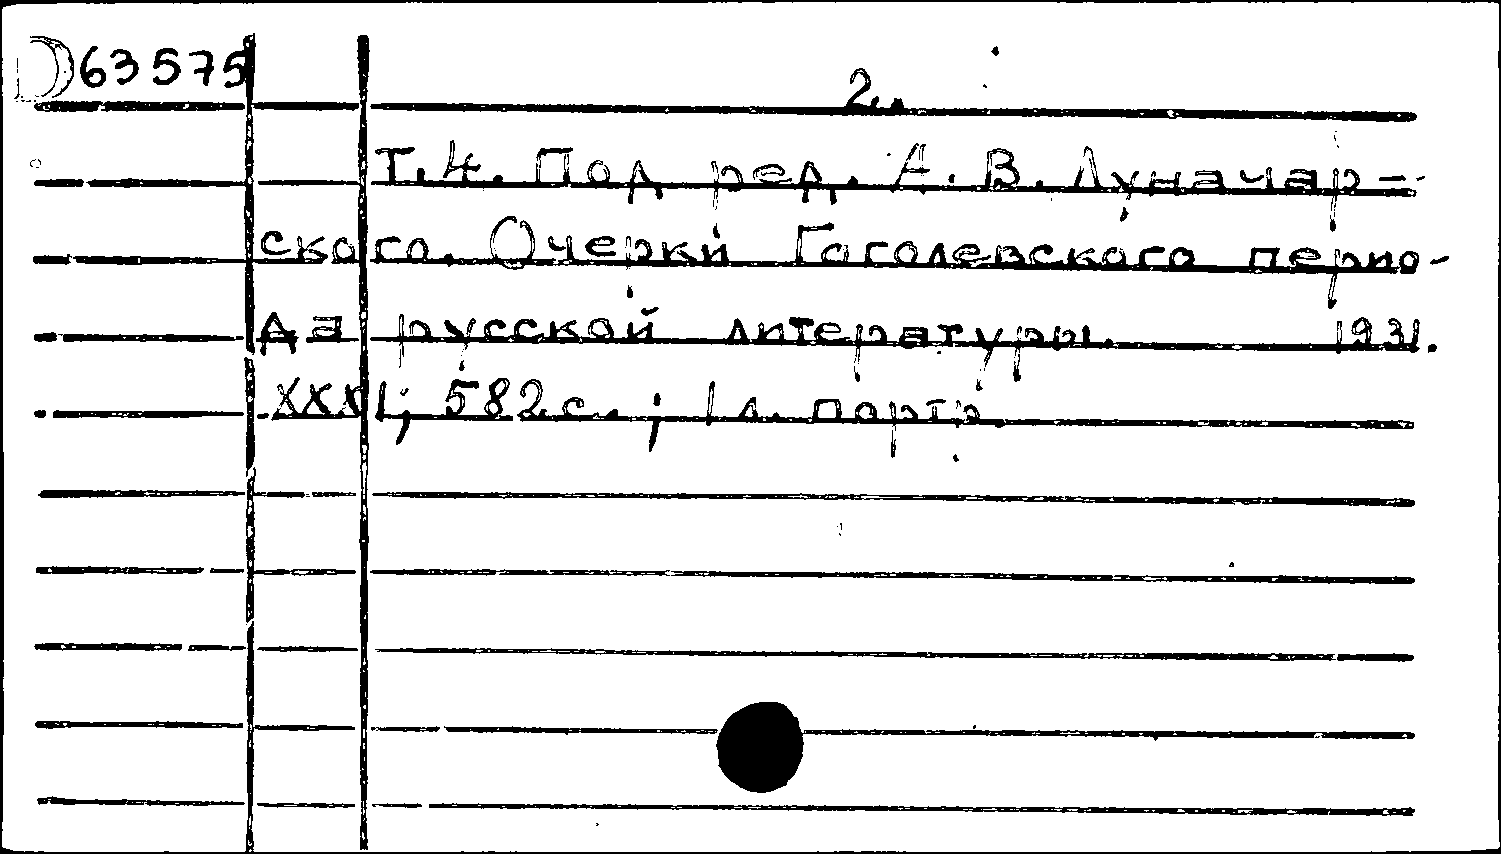 D 63575
2.
Т. 4. Под ред. А. В. Луначар-
ского. Очерки Гоголевского перио-
да русской литературы. 1931.
XXXI; 582 с.; 1 л. портр.